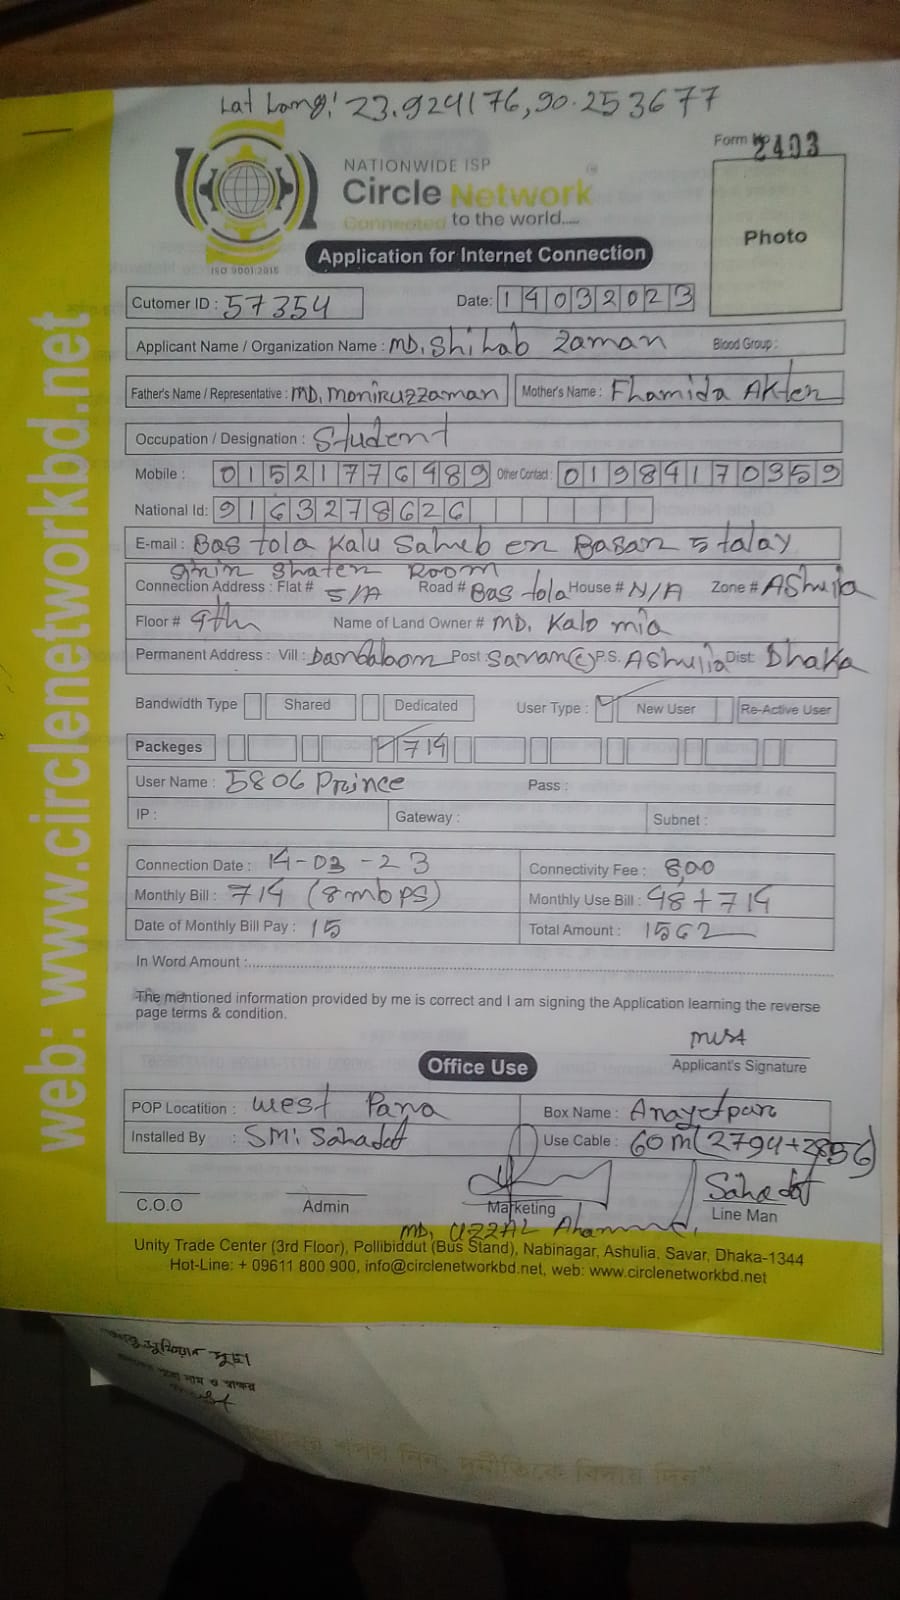 Lat Long: 23.924176,90.253677
Form 2403
NATIONWIDE ISP
Circle Network
Connected to the world....
ISO 9001:2015
Photo
Application for Internet Connection
Cutomer ID : 57354
Date: 14032023
Applicant Name / Organization Name : MD. Shihab Zaman Blood Group :
Father's Name / Representative : MD. Moniruzzaman Mother's Name : Fhamida Akter
Occupation / Designation : Student
Mobile : 01521776489 Other Contact : 01984170359
National Id: 9163278626
E-mail : Bas tola Kalu Saheb er Basar 5 talay
Room
Connection Address : Flat # 5/A Road # Bas tola House # N/A Zone # Ashulia
Floor # 9th Name of Land Owner # MD. Kalo mia
Permanent Address : Vill : Post : Savar P.S. Ashulia Dist: Dhaka
Bandwidth Type Shared Dedicated User Type : New User Re-Active User
Packeges 714
User Name : 5806 Prince Pass :
IP : Gateway : Subnet :
Connection Date : 14-03-23 Connectivity Fee : 800
Monthly Bill : 714 (8mbps) Monthly Use Bill : 48+714
Date of Monthly Bill Pay : 15 Total Amount : 1562
In Word Amount :
The mentioned information provided by me is correct and I am signing the Application learning the reverse
page terms & condition.
Applicant's Signature
Office Use
POP Locatition : West Para Box Name : Anayetpur
Installed By : SM: Sahadat Use Cable : 60m(2794+2856)
Sahadat
C.O.O Admin Marketing Line Man
MD. UZZAL Ahammed
Unity Trade Center (3rd Floor), Pollibiddut (Bus Stand), Nabinagar, Ashulia, Savar, Dhaka-1344
Hot-Line: + 09611 800 900, info@circlenetworkbd.net, web: www.circlenetworkbd.net
web: www.circlenetworkbd.net
নাম ও স্বাক্ষর
শপথ নিন, দুর্নীতিকে বিদায় দিন"